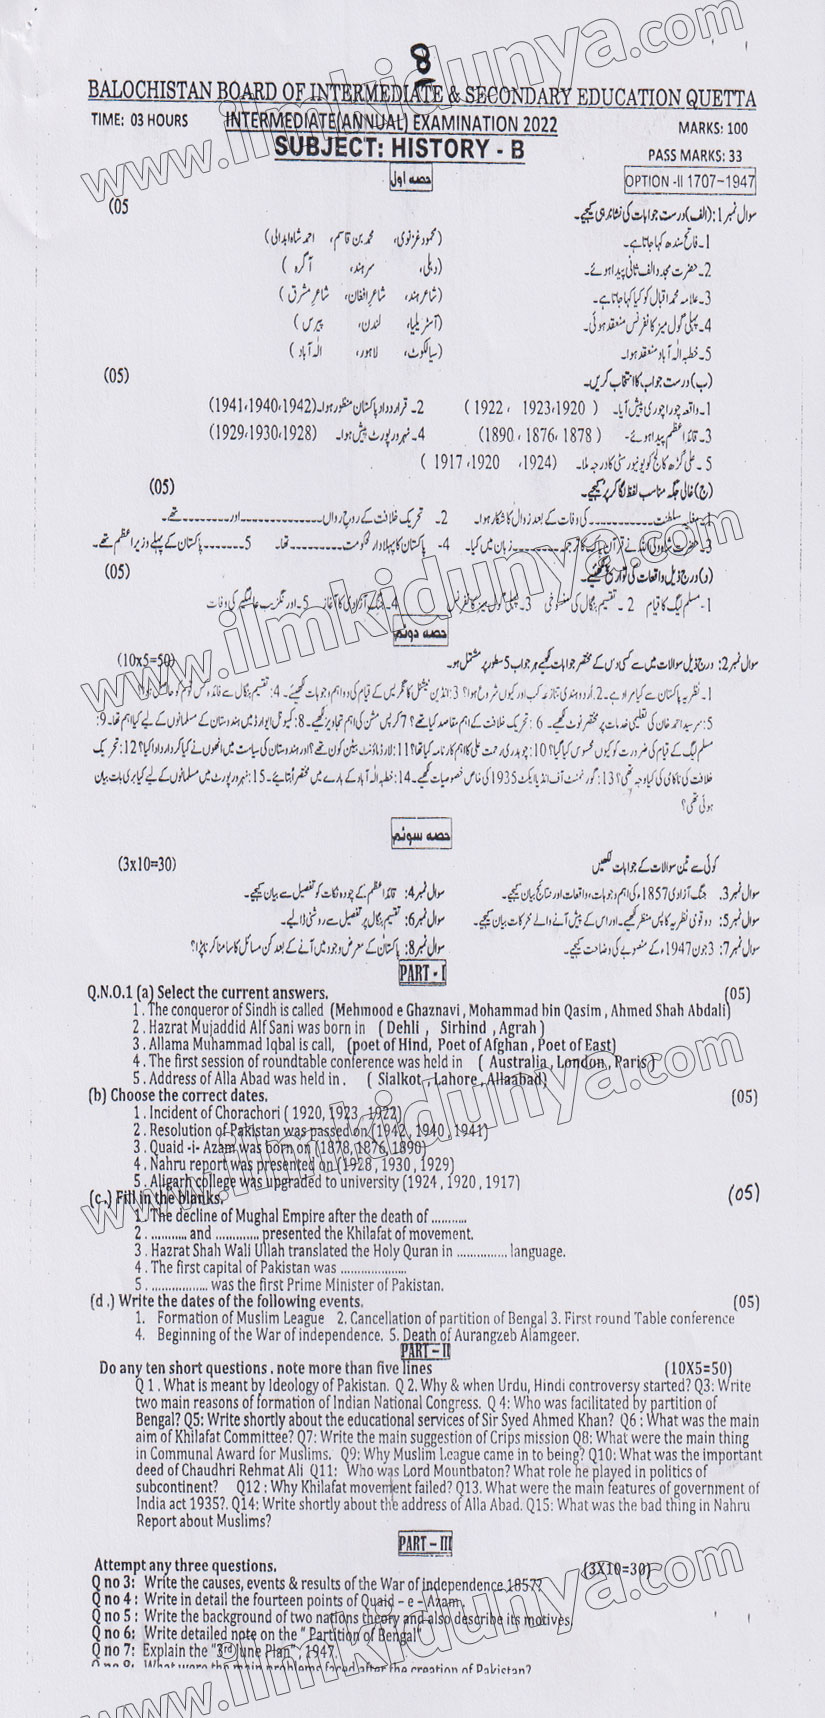 8
BALOCHISTAN BOARD OF INTERMEDIATE & SECONDARY EDUCATION QUETTA
TIME: 03 HOURS INTERMEDIATE(ANNUAL) EXAMINATION 2022 MARKS: 100
SUBJECT: HISTORY - B PASS MARKS: 33
حصہ اول OPTION -II 1707-1947
سوال نمبر1: (الف) درست جوابات کی نشاندہی کیجیے۔ (05
1۔ فاتح سندھ کہا جاتا ہے۔ (محمود غزنوی، محمد بن قاسم، احمد شاہ ابدالی)
2۔ حضرت مجدد الف ثانی پیدا ہوئے۔ (دہلی، سرہند، آگرہ)
3۔ علامہ محمد اقبال کو کیا کہا جاتا ہے۔ (شاعر ہند، شاعر افغان، شاعر مشرق)
4۔ پہلی گول میز کانفرنس منعقد ہوئی۔ (آسٹریلیا، لندن، پیرس)
5۔ خطبہ الہ آباد منعقد ہوا۔ (سیالکوٹ، لاہور، الہ آباد)
(ب) درست جواب کا انتخاب کریں۔ (05)
1۔ واقعہ چورا چوری پیش آیا۔ (1920، 1923، 1922) 2۔ قرارداد پاکستان منظور ہوا۔ (1942، 1940، 1941)
3۔ قائد اعظم پیدا ہوئے۔ (1878، 1876، 1890) 4۔ نہرو رپورٹ پیش ہوا۔ (1928، 1930، 1929)
5۔ علی گڑھ کالج کو یونیورسٹی کا درجہ ملا۔ (1924، 1920، 1917)
(ج) خالی جگہ مناسب لفظ لگا کر پر کیجیے۔ (05)
1۔ مغلیہ سلطنت ---------- کی وفات کے بعد زوال کا شکار ہوا۔ 2۔ تحریک خلافت کے روح رواں -------- اور -------- تھے۔
3۔ حضرت شاہ ولی اللہ نے قرآن پاک کا ترجمہ -------- زبان میں کیا۔ 4۔ پاکستان کا پہلا دارلحکومت -------- تھا۔ 5۔ -------- پاکستان کے پہلے وزیر اعظم تھے۔
(د) درج ذیل واقعات کی تواریخ لکھیے۔ (05)
1۔ مسلم لیگ کا قیام 2۔ تقسیم بنگال کی منسوخی 3۔ پہلی گول میز کانفرنس 4۔ جنگ آزادی کا آغاز 5۔ اورنگزیب عالمگیر کی وفات
حصہ دوئم
سوال نمبر2: درج ذیل سوالات میں سے کسی دس کے مختصر جوابات لکھیے ہر جواب 5 سطور پر مشتمل ہو۔ (10x5=50)
1۔ نظریہ پاکستان سے کیا مراد ہے۔ 2: اردو ہندی تنازعہ کب اور کیوں شروع ہوا؟ 3: انڈین نیشنل کانگریس کے قیام کی دو اہم وجوہات لکھیے۔ 4: تقسیم بنگال سے فائدہ کس قوم کو
5: سرسید احمد خان کی تعلیمی خدمات پر مختصر نوٹ لکھیے۔ 6: تحریک خلافت کے اہم مقاصد کیا تھے؟ 7: کرپس مشن کی اہم تجاویز لکھیے۔ 8: کمیونل ایوارڈ میں ہندوستان کے مسلمانوں کے لیے کیا اہم تھا۔ 9:
مسلم لیگ کے قیام کی ضرورت کو کیوں محسوس کیا گیا؟ 10: چوہدری رحمت علی کا اہم کارنامہ کیا تھا؟ 11: لارڈ ماؤنٹ بیٹن کون تھے؟ اور ہندوستان کی سیاست میں انھوں نے کیا کردار ادا کیا؟ 12: تحریک
خلافت کی ناکامی کی کیا وجہ تھی؟ 13: گورنمنٹ آف انڈیا ایکٹ 1935 کی خاص خصوصیات لکھیے۔ 14: خطبہ الہ آباد کے بارے میں مختصر اً بتائیے۔ 15: نہرو رپورٹ میں مسلمانوں کے لیے کیا بری بات بیان
ہوئی تھی؟
حصہ سوئم
کوئی سے تین سوالات کے جوابات لکھیں (3x10=30)
سوال نمبر3۔ جنگ آزادی 1857ء کی اہم وجوہات، واقعات اور نتائج بیان کیجیے۔ سوال نمبر4: قائد اعظم کے چودہ نکات کو تفصیل سے بیان کیجیے۔
سوال نمبر5: دو قومی نظریہ کا پس منظر لکھیے۔ اور اس کے پیش آنے والے محرکات بیان کیجیے۔ سوال نمبر6: تقسیم بنگال پر تفصیل سے روشنی ڈالیے۔
سوال نمبر7: 3 جون 1947ء کے منصوبے کی وضاحت کیجیے۔ سوال نمبر8: پاکستان کے معرض وجود میں آنے کے بعد کن مسائل کا سامنا کرنا پڑا؟
PART - I
Q.N.O.1 (a) Select the current answers. (05)
1 . The conqueror of Sindh is called (Mehmood e Ghaznavi , Mohammad bin Qasim , Ahmed Shah Abdali)
2 . Hazrat Mujaddid Alf Sani was born in ( Dehli , Sirhind , Agrah )
3 . Allama Muhammad Iqbal is call, (poet of Hind, Poet of Afghan , Poet of East)
4 . The first session of roundtable conference was held in ( Australia , London , Paris )
5 . Address of Alla Abad was held in . ( Sialkot , Lahore , Allaabad)
(b) Choose the correct dates. (05)
1 . Incident of Chorachori ( 1920, 1923 , 1922)
2 . Resolution of Pakistan was passed on (1942 , 1940 , 1941)
3 . Quaid -i- Azam was born on (1878,1876,1890)
4 . Nahru report was presented on (1928 , 1930 , 1929)
5 . Aligarh college was upgraded to university (1924 , 1920 , 1917)
(c.) Fill in the blanks. (05)
1 . The decline of Mughal Empire after the death of ..........
2 . ............ and ............. presented the Khilafat of movement.
3 . Hazrat Shah Wali Ullah translated the Holy Quran in .............. language.
4 . The first capital of Pakistan was ...................
5 . .................. was the first Prime Minister of Pakistan.
(d .) Write the dates of the following events. (05)
1. Formation of Muslim League 2. Cancellation of partition of Bengal 3. First round Table conference
4. Beginning of the War of independence. 5. Death of Aurangzeb Alamgeer.
PART - II
Do any ten short questions . note more than five lines (10X5=50)
Q 1 . What is meant by Ideology of Pakistan. Q 2. Why & when Urdu, Hindi controversy started? Q3: Write
two main reasons of formation of Indian National Congress. Q 4: Who was facilitated by partition of
Bengal? Q5: Write shortly about the educational services of Sir Syed Ahmed Khan? Q6 : What was the main
aim of Khilafat Committee? Q7: Write the main suggestion of Crips mission Q8: What were the main thing
in Communal Award for Muslims. Q9: Why Muslim League came in to being? Q10: What was the important
deed of Chaudhri Rehmat Ali Q11: Who was Lord Mountbaton? What role he played in politics of
subcontinent? Q12 : Why Khilafat movement failed? Q13. What were the main features of government of
India act 1935?. Q14: Write shortly about the address of Alla Abad. Q15: What was the bad thing in Nahru
Report about Muslims?
PART - III
Attempt any three questions. (3X10=30)
Q no 3: Write the causes, events & results of the War of independence 1857?
Q no 4 : Write in detail the fourteen points of Quaid - e - Azam.
Q no 5 : Write the background of two nations theory and also describe its motives.
Q no 6: Write detailed note on the " Partition of Bengal"
Q no 7: Explain the "3rd June Plan", 1947.
Q no 8: What were the main problems faced after the creation of Pakistan?
www.ilmkidunya.com
www.ilmkidunya.com
www.ilmkidunya.com
www.ilmkidunya.com